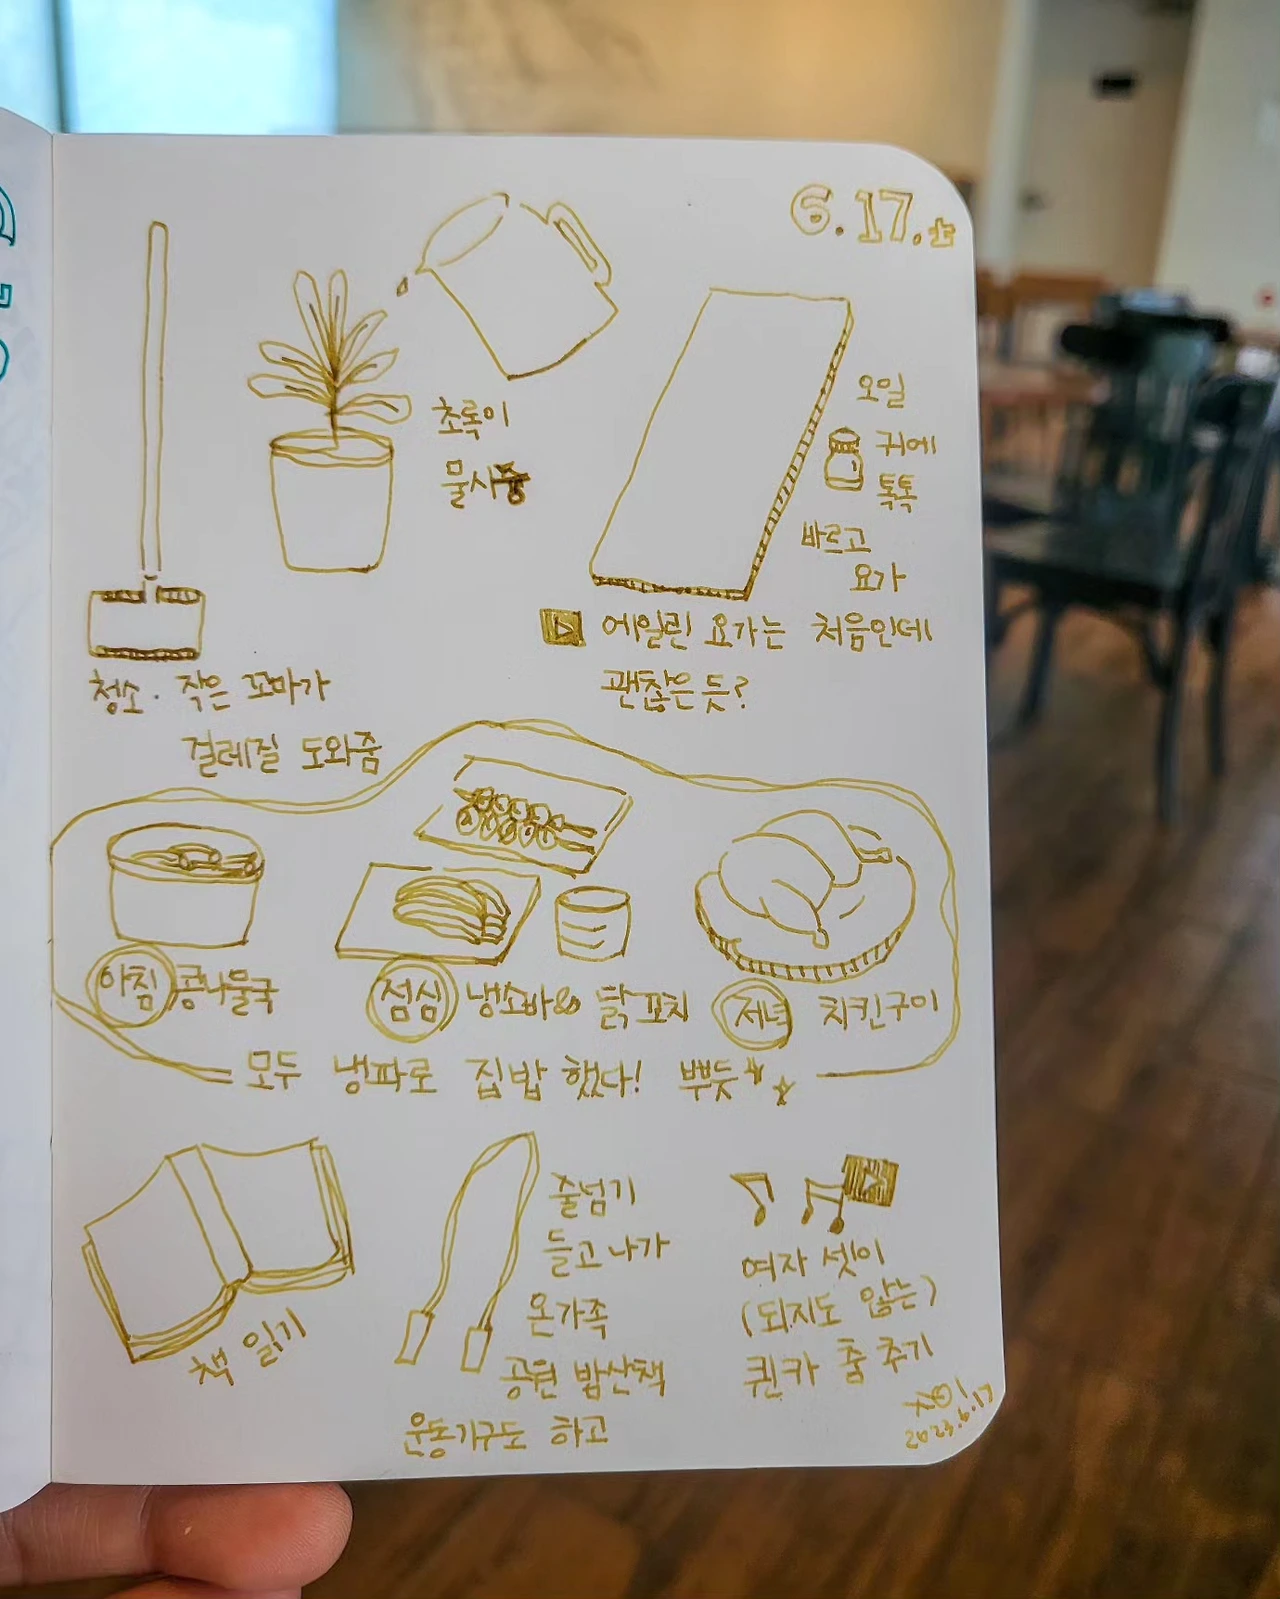 6.17.土
초록이
물시중
오일
귀에
톡톡
바르고
요가
에일린 요가는 처음인데
괜찮은 듯?
청소. 작은 꼬마가
걸레질 도와줌
아침 콩나물국
점심 냉소바& 닭꼬치
저녁 치킨구이
모두 냉파로 집밥 했다! 뿌듯
책 읽기
줄넘기
들고 나가
온가족
공원 밤산책
운동기구도 하고
여자 셋이
(되지도 않는)
퀸카 춤 추기
2023.6.17